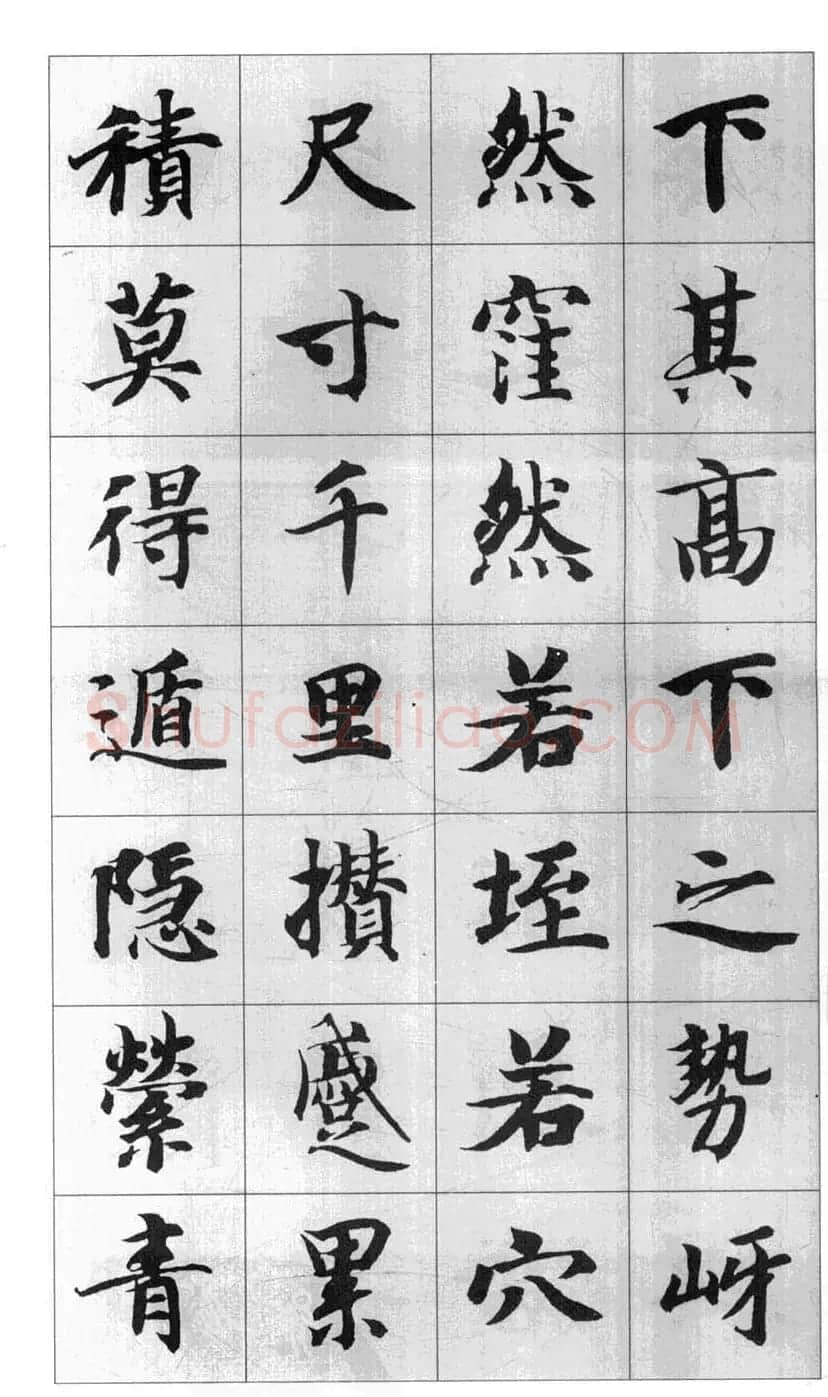 下其高下之勢岈
然窪然若垤若穴
尺寸千里攢蹙累
積莫得遁隱縈青
Shufaziliao.COM